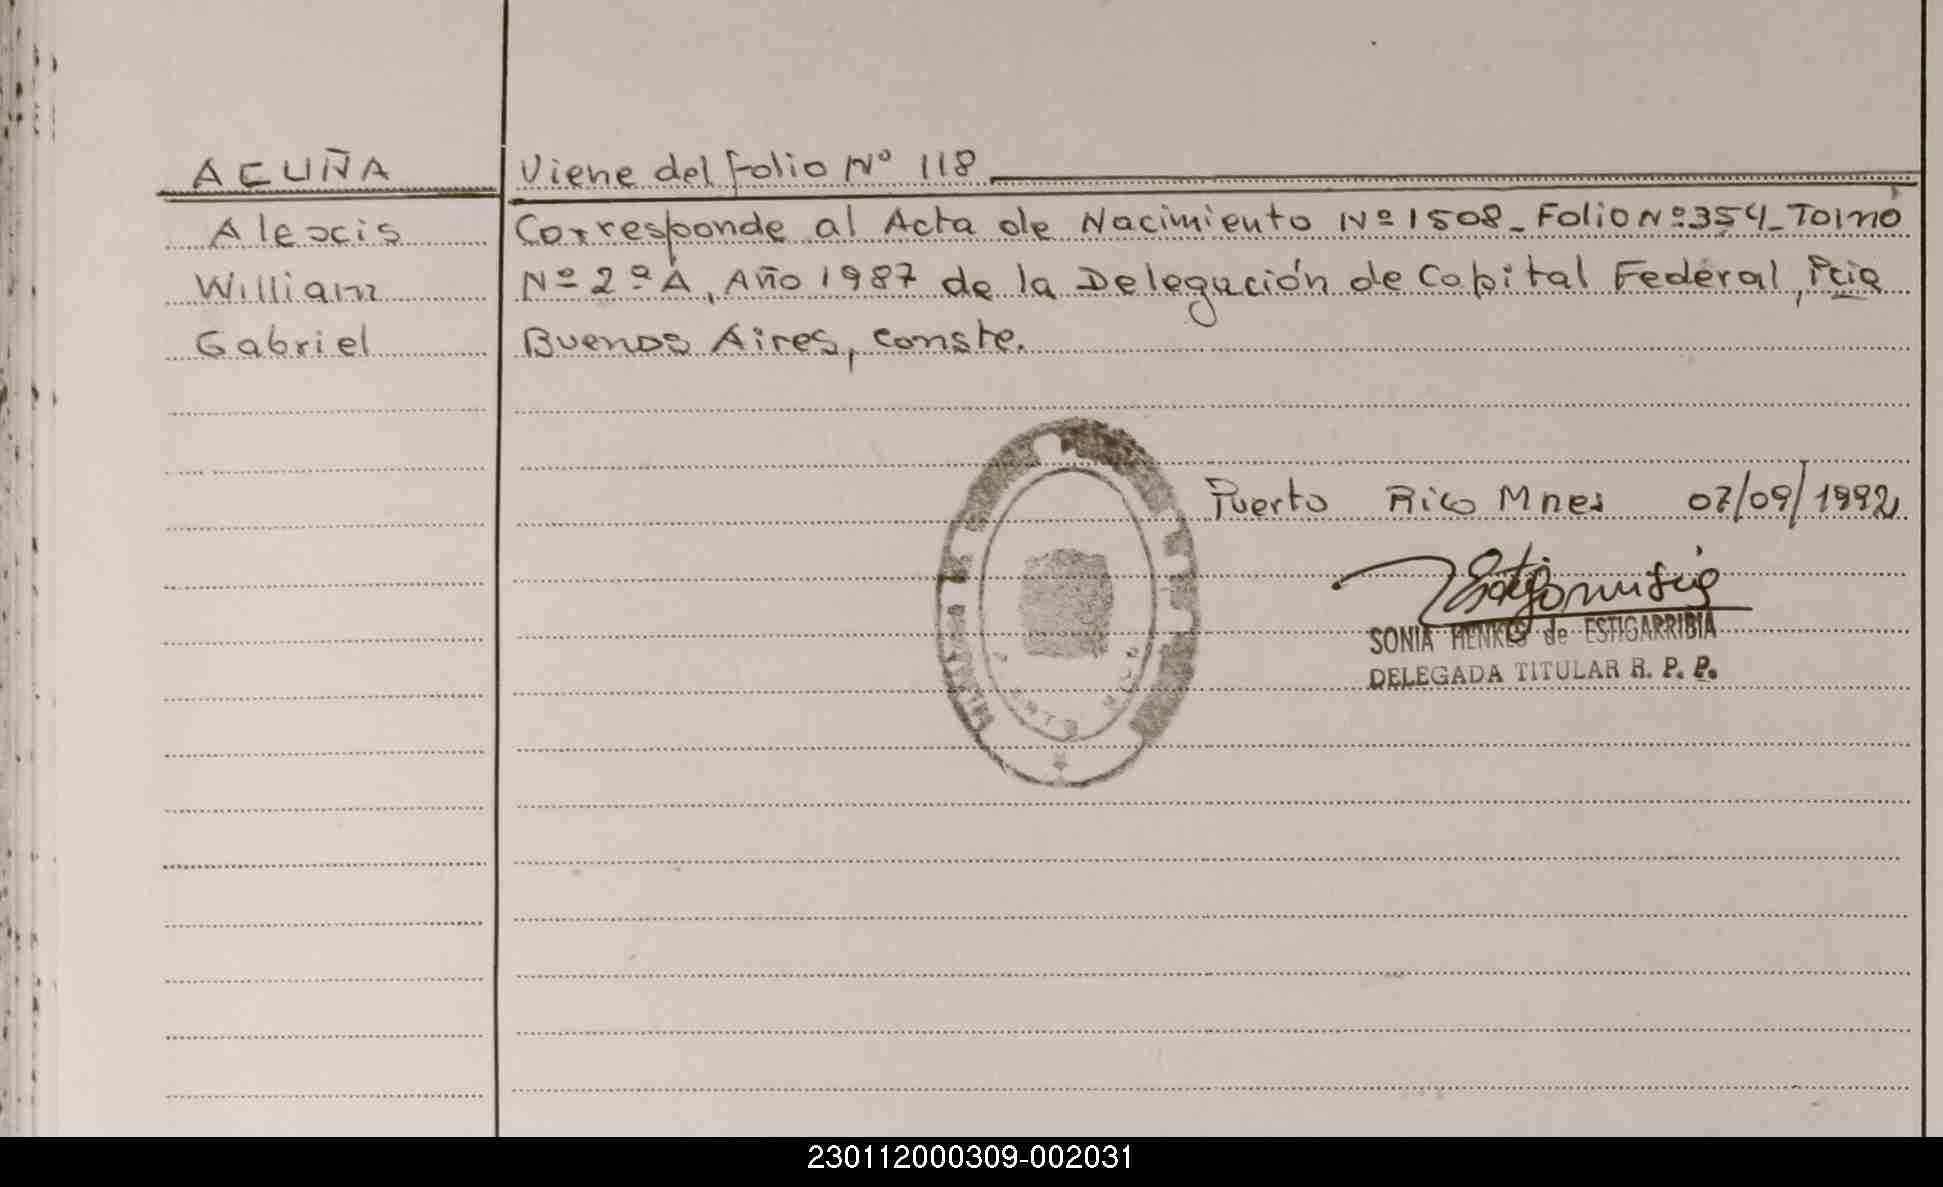 ACUÑA
Viene del folio Nº 118
Alexcis
Corresponde al Acta de Nacimiento Nº 1508_ Folio Nº 354_ Tomo
William
Nº 2º A, Año 1987 de la Delegación de Capital Federal, Pcia
Gabriel
Buenos Aires, conste.
Puerto Rico Mnes 07/09/1992
SONIA HENKES de ESTIGARRIBIA
DELEGADA TITULAR R. P. P.
230112000309-002031